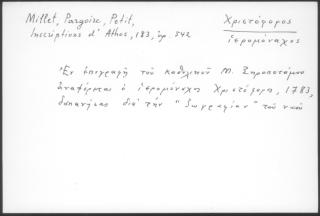 Millet, Pargoire, Petit,
Χριστόφορος
Inscriptions d'Athos, 183, ἀρ. 542
ἱερομόναχος
Ἐν ἐπιγραφῇ τοῦ καθολικοῦ Μ. Ξηροποτάμου
ἀναφέρεται ὁ ἱερομόναχος Χριστόφορος, 1783,
δαπανήσας διὰ τὴν "ζωγραφίαν" τοῦ ναοῦ